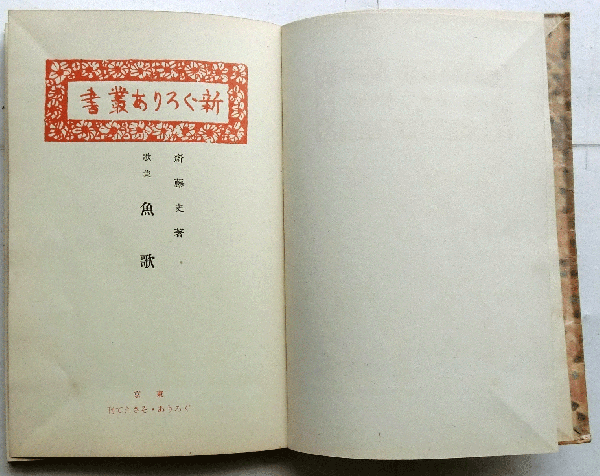 新ぐろりあ叢書
齋藤史著
歌集 魚歌
東京
ぐろりあ・そさえて刊